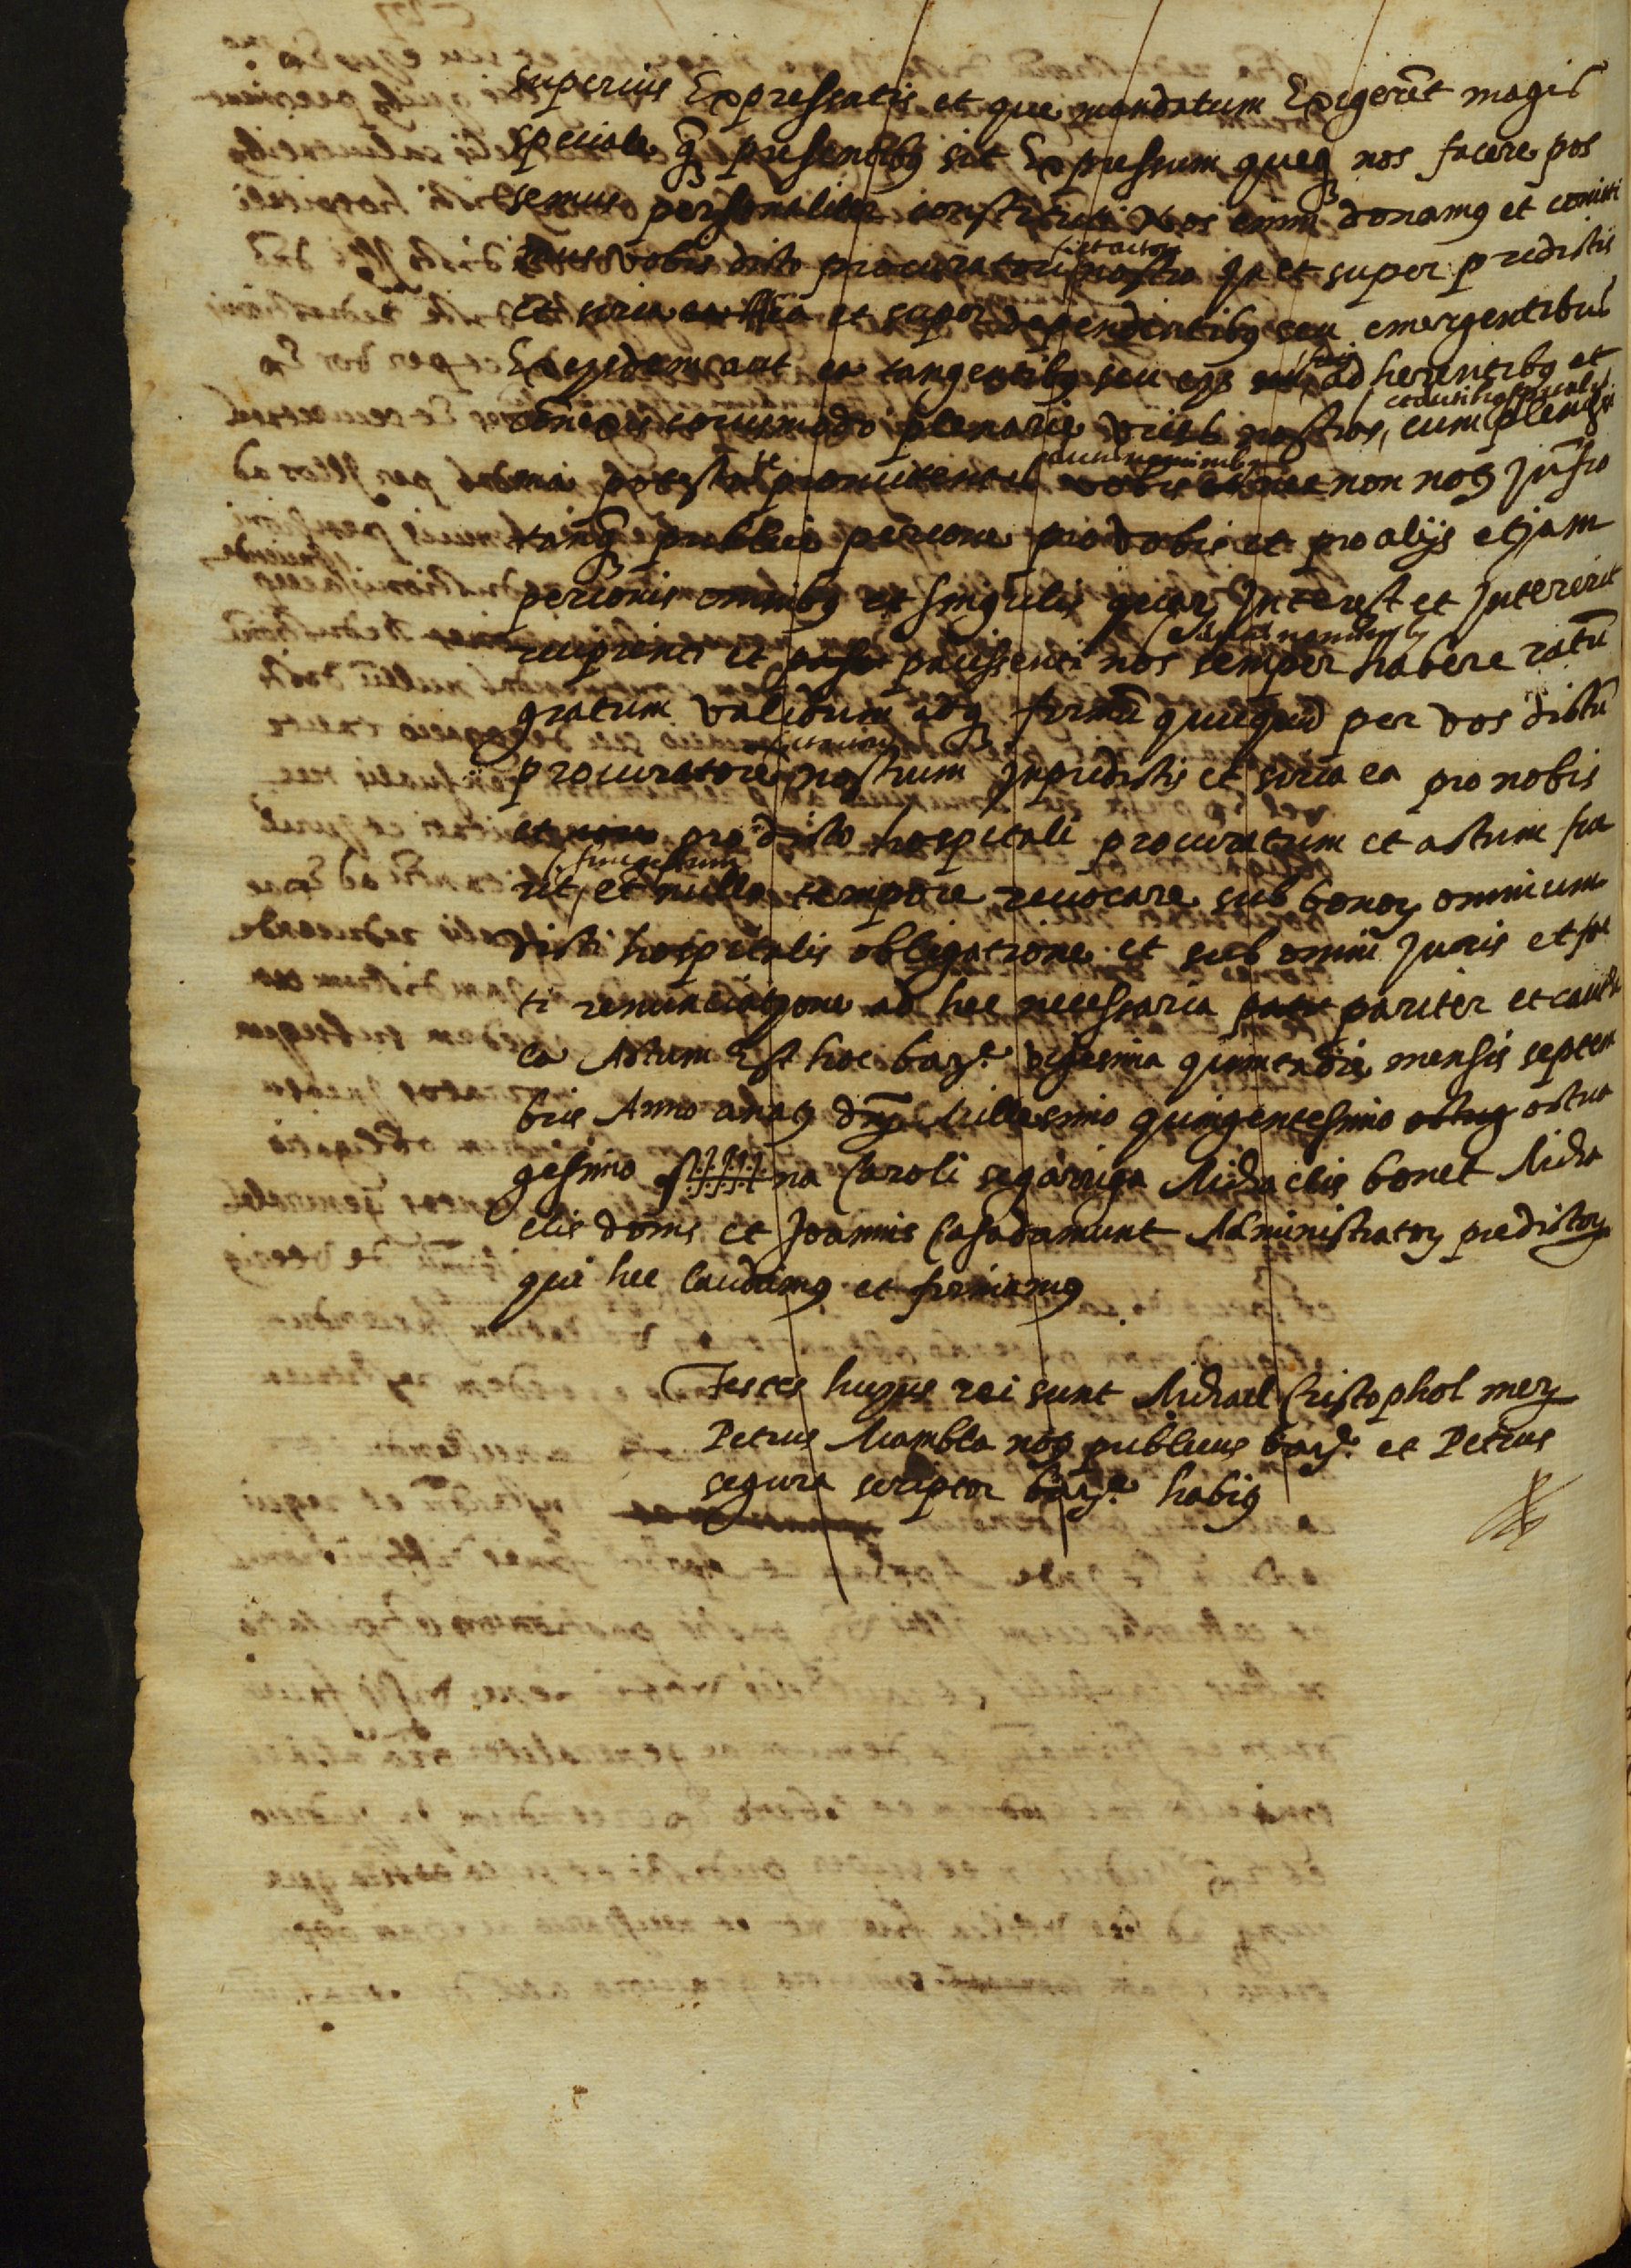 superius Expressatis et que mandatum Exigerēt magis
speciale q̄ȝ presentibȝ sit Expressum queqȝ nos facere pos
semus personaliter constituti Nos enim donamȝ et comitti
mus vobis dicto procuratori nostro In et super predictis
et actori
et circa ea et super dependentibȝ seu emergentibus
Ex eisdem aut ea tangentibȝ seu eis adherentibȝ et
conexis cuiusmodo plenarie vices nostras, cum plenissi
ma potestate promittentes vobis nec non notȝ Infro
tanqȝ publice persone pro vobis et pro alijs etjam
personis omnibȝ et singulis quorȝ Interest et Intererit
recipienti et paciscenti nos semper habere ratū
dictis nominibȝ
gratum validum atqȝ firmū quicquid per vos dictū
procuratorē nostrum In predictis et circa ea pro nobis
et pro dicto hospitali procuratum et actum fue
rit, et nullo tempore revocare sub bonorȝ omnium
sive gestum
dicti hospitalis obligatione et sub omni juris et fac
ti renunciatjone ad hec necessaria pariter et caute
la Actum Est hoc barȝe vigesima quinta die mensis septem
bris Anno a natȝ dnȝ Millesimo quingentesimo octua
gesimo S####na Caroli segarriga Michaelis bonet Micha
elis doms et Joannis Casadamunt Administratorȝ predictorȝ
qui hec laudamȝ et firmamȝ
Testes hujus rei sunt Michael Cristophol merȝ
Petrus Mambla notȝ publicus barȝe et Petrus
segura scriptor barȝe habiȝ